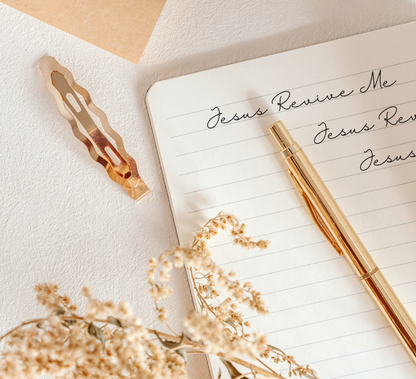 Jesus Revive Me
Jesus Rev
Jesus